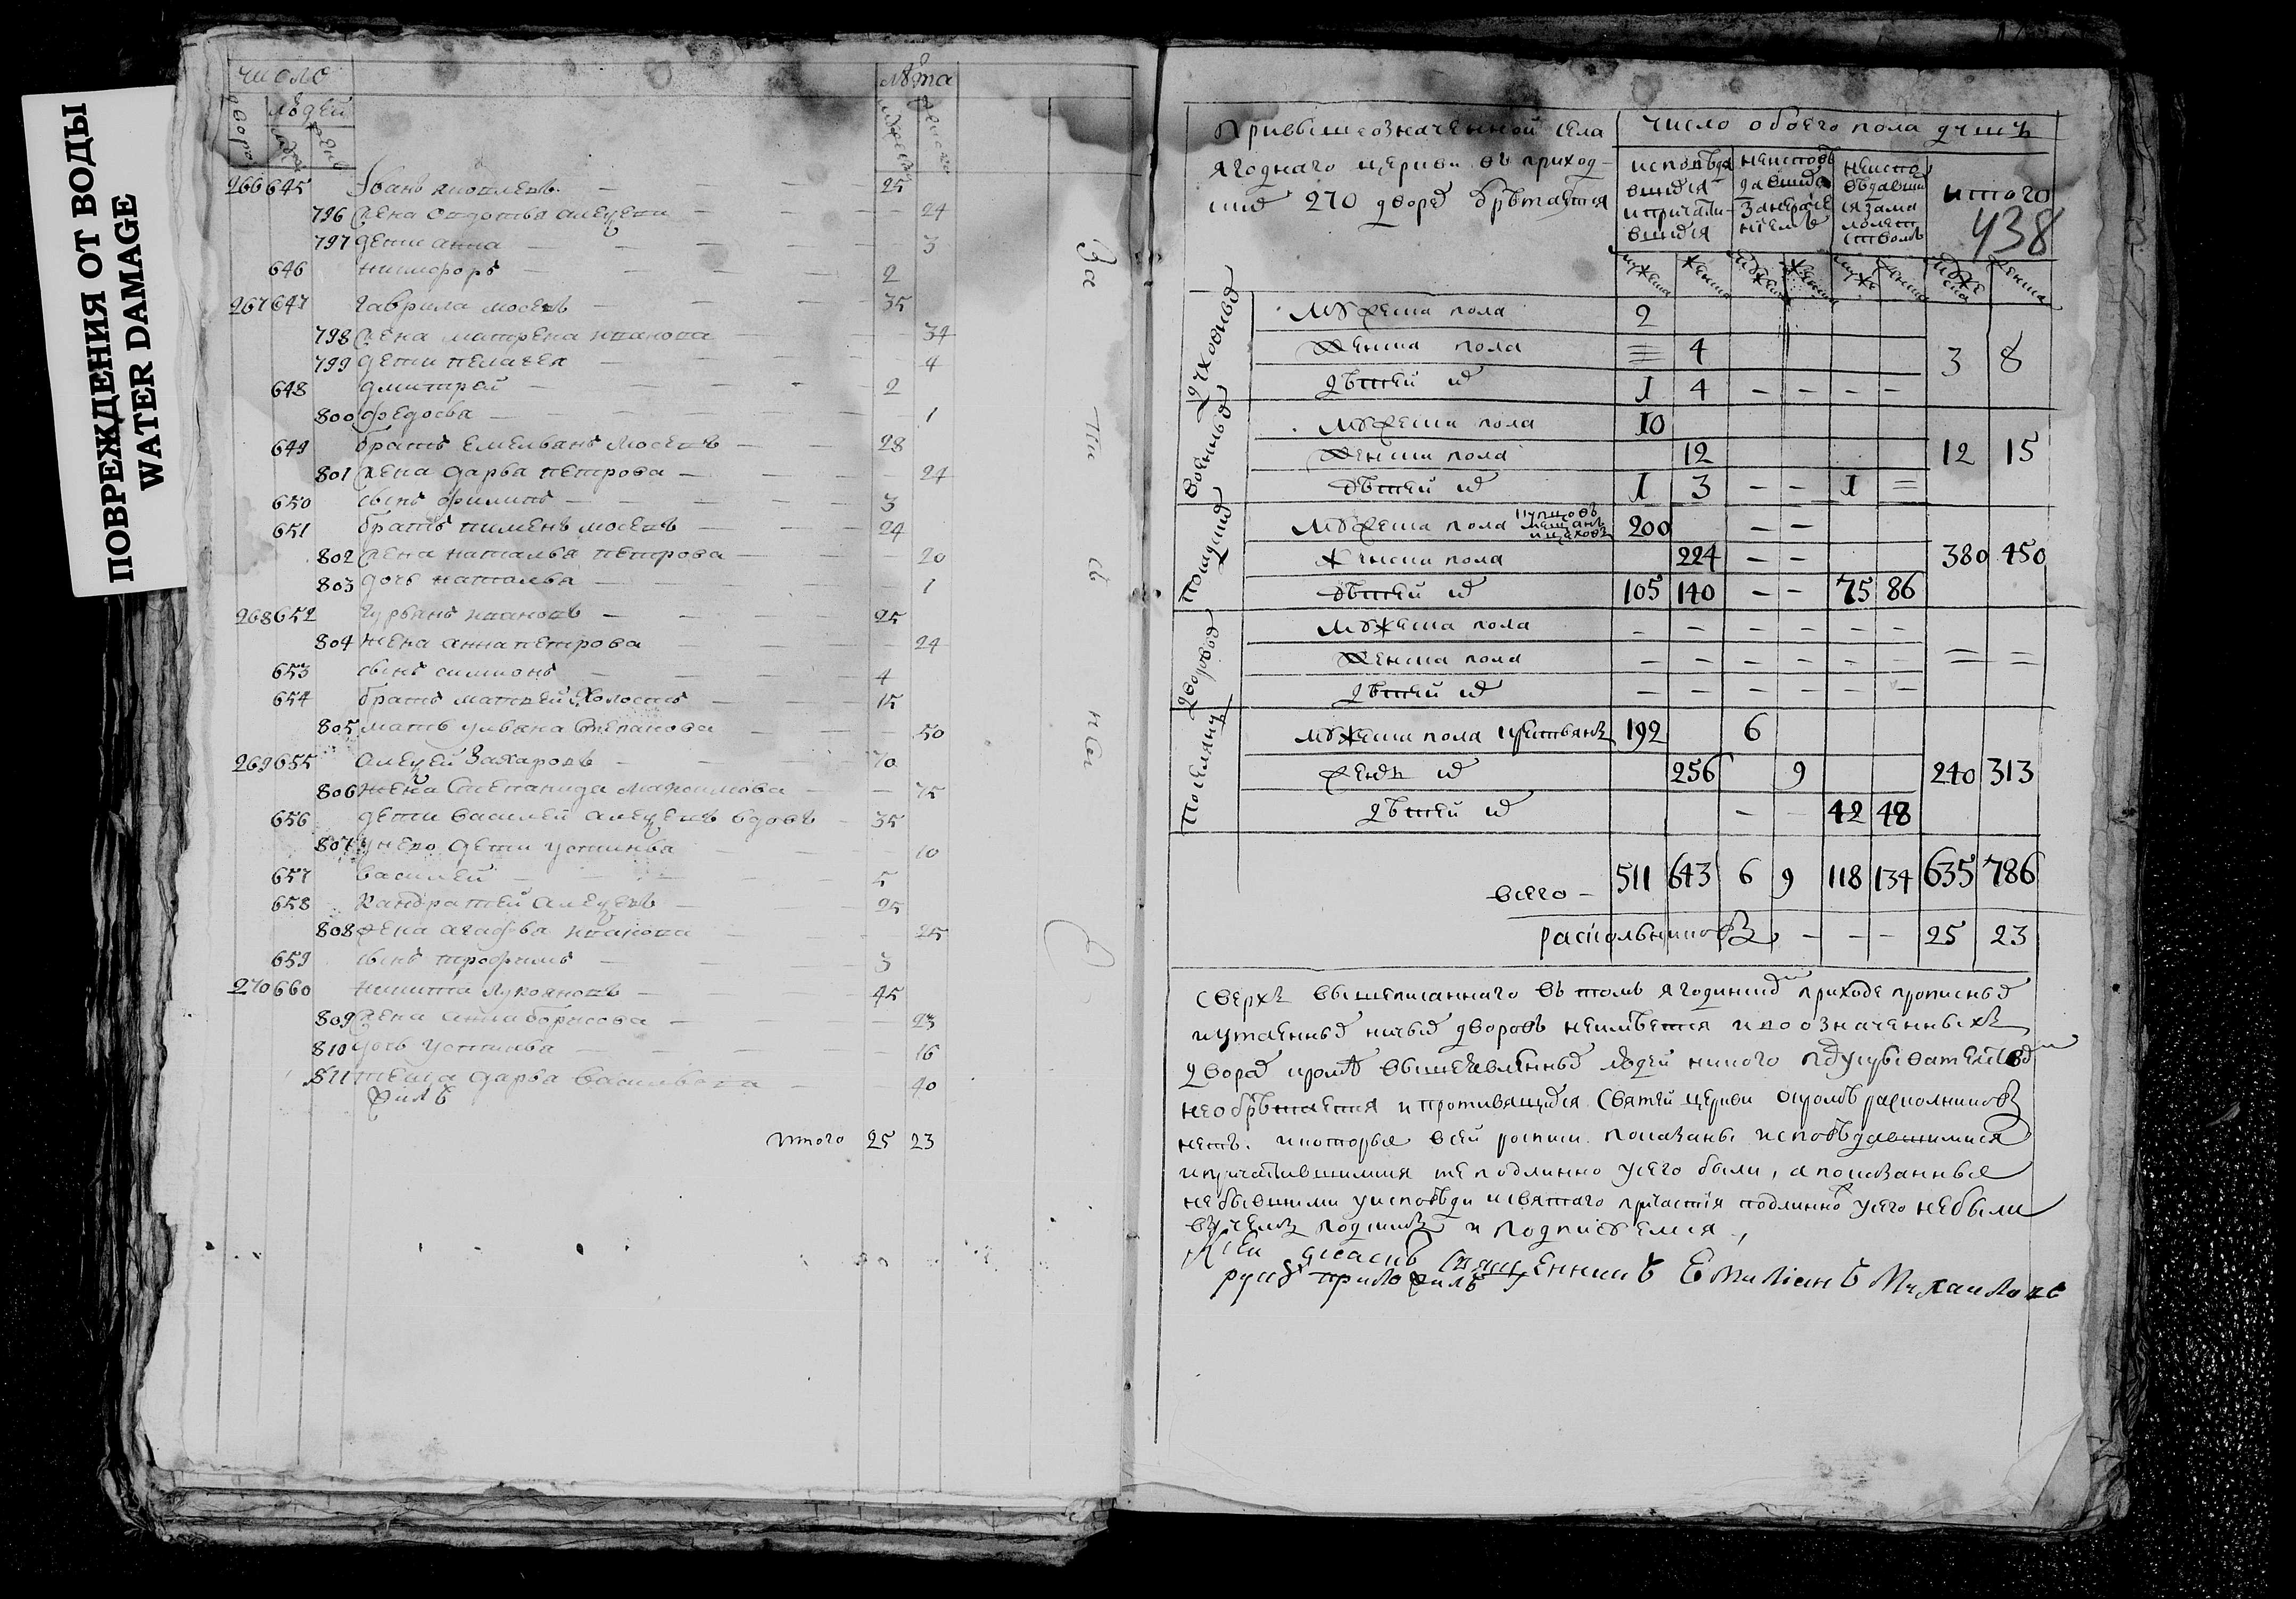 ПОВРЕЖДЕНИЯ ОТ ВОДЫ
WATER DAMAGE
число
лѣта
людей
266 645 Иванъ 25
796 жена 24
797 дети анна 3
646 никифоръ 2
267 647 гаврила мосеевъ 35
798 жена матрена иванова 34
799 дети пелагея 4
648 дмитрей 2
800 федосья 1
649 братъ емельянъ мосеевъ 28
801 жена дарья петрова 24
650 сынъ филипъ 3
651 братъ пименъ мосеевъ 24
802 жена наталья петрова 20
803 дочь наталья 1
268 652 гурьянъ ивановъ 25
804 жена анна петрова 24
653 сынъ симионъ 4
654 братъ матвей холостъ 15
805 мать ульяна степанова 50
269 655 алеѯей захаровъ 70
806 жена степанида максимова 75
656 дети василей алеѯеевъ вдовъ 35
807 унево дети устинья 10
657 василей 5
658 кандратей алеѯеевъ 25
808 жена агафья иванова 25
659 сынъ трофимъ 3
270 660 никита лукояновъ 45
809 жена анна борисова 23
810 дочь устинья 16
811 теща дарья васильева 40
жилъ
итого 25 23
При вышеозначенной села
ягоднаго церкви въ приход-
ских 270 дворех обретается
число обоего пола душъ
исповѣда
вшихся
и причасти-
вшихся
неиспов
давших
за нерачѣ
ниемъ
неиспо
вѣдавши
ся за ма
лолет
ством
итого
438
Духовных
мужеска пола 2
женска пола 4
дѣтей их 1 4 – – – –
3 8
Военных
мужеска пола 10
женска пола 12
дѣтей их 1 3 – – 1 =
12 15
Посацких
мужеска пола купцовъ мещанъ и цеховъ 200 – –
женска пола 224 – –
дѣтей их 105 140 – – 75 86
380 450
Дворовых
мужеска пола – – – – – –
женска пола – – – – – –
дѣтей их – – – – – –
= =
Поселянъ
мужеска пола крестьянъ 192 6
женъ их 256 9
дѣтей их – – 42 48
240 313
всего – 511 643 6 9 118 134 635 786
раскольниковъ – – – 25 23
сверхъ вышеписаннаго въ томъ ягодинском приходе прописных
и утаенных ничьих дворовъ неимѣется и во означенныхъ
дворах кромѣ вышеявленных людей никого
необрѣтается и противящихся святей церкви окромѣ раскольниковъ
нетъ. и которые всей росписи показаны исповѣдавшимися
и причастившимися те подлинно усего были, а показанные
небывшими уисповѣди и святаго причастія подлинно усего небыли
въ чемъ подписуемся.
Ксей священникъ Емиліанъ Михаиловъ
руку приложилъ